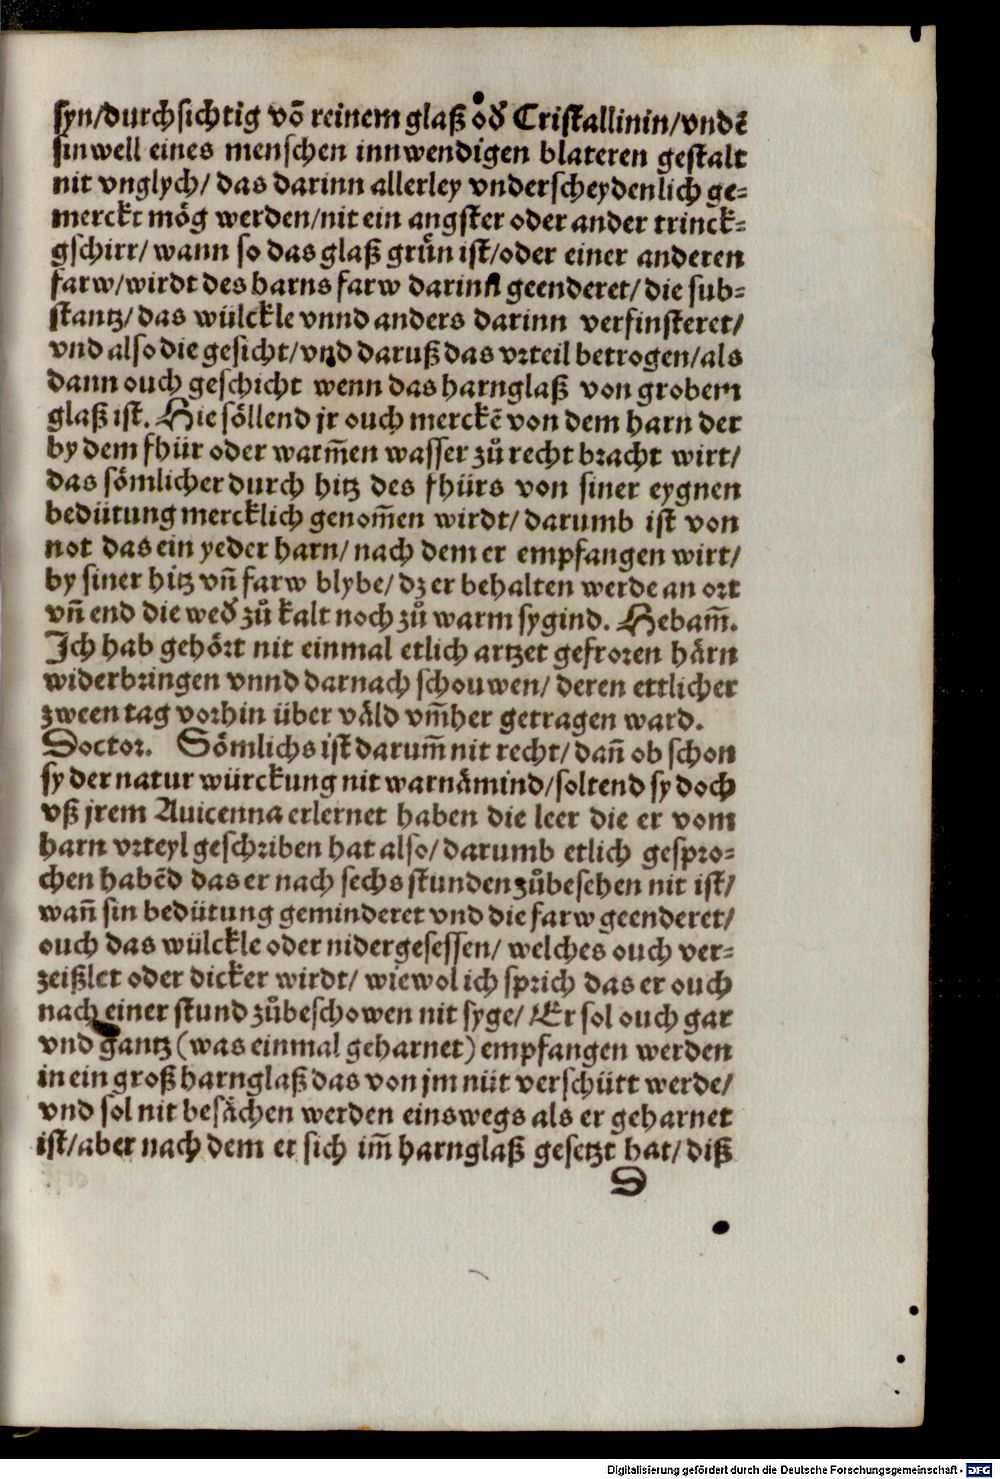 syn/durchsichtig võ reinem glaß od̕ Cristallinin/vndẽ
sinwell eines menschen innwendigen blateren gestalt
nit vnglych/ das darinn allerley vnderscheydenlich ge=
merckt mög werden/nit ein angster oder ander trinck=
gschirr/ wann so das glaß grün ist/oder einer anderen
farw/wirdt des harns farw darinn geenderet/ die sub=
stantz/ das wülckle vnnd anders darinn verfinsteret/
vnd also die gesicht/vnd daruß das vrteil betrogen/als
dann ouch geschicht wenn das harnglaß von grobem
glaß ist. Hie söllend jr ouch merckẽ von dem harn der
by dem fhür oder warm̃en wasser zů recht bracht wirt/
das sömlicher durch hitz des fhürs von siner eygnen
bedütung mercklich genom̃en wirdt/ darumb ist von
not das ein yeder harn/ nach dem er empfangen wirt/
by siner hitz vñ farw blybe/ dz er behalten werde an ort
vñ end die wed̕ zů kalt noch zů warm sygind. Hebam̃.
Ich hab gehört nit einmal etlich artzet gefroren härn
widerbringen vnnd darnach schouwen/ deren ettlicher
zween tag vorhin über väld vm̃her getragen ward.
Doctor. Sömlichs ist darum̃ nit recht/ dañ ob schon
sy der natur würckung nit warnämind/soltend sy doch
vß jrem Auicenna erlernet haben die leer die er vom
harn vrteyl geschriben hat also/ darumb etlich gespro=
chen habẽd das er nach sechs stunden zůbesehen nit ist/
wañ sin bedütung geminderet vnd die farw geenderet/
ouch das wülckle oder nidergesessen/ welches ouch ver=
zeißlet oder dicker wirdt/ wiewol ich sprich das er ouch
nach einer stund zůbeschowen nit syge/ Er sol ouch gar
vnd gantz (was einmal geharnet) empfangen werden
in ein groß harnglaß das von jm nüt verschütt werde/
vnd sol nit besächen werden einswegs als er geharnet
ist/aber nach dem er sich im̃ harnglaß gesetzt hat/ diß
S
Digitalisierung gefördert durch die Deutsche Forschungsgemeinschaft - DFG